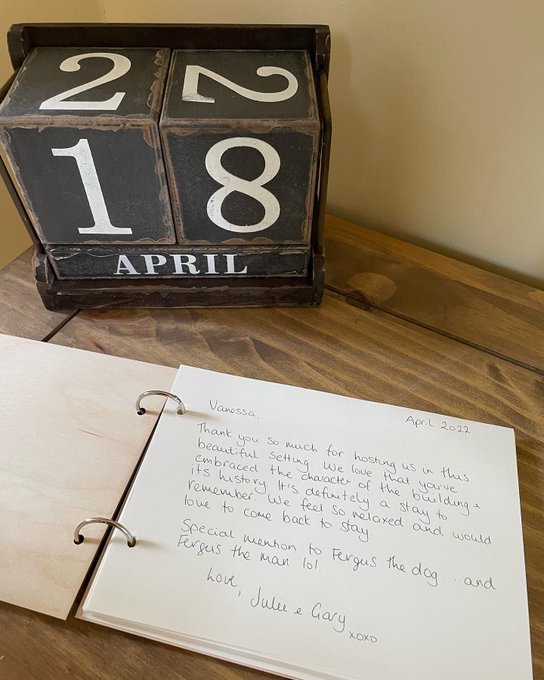 2 2
1 8
APRIL
Vanessa,
April 2022
Thank you so much for hosting us in this
beautiful setting. We love that you've
embraced the character of the building +
its history. It's definitely a stay to
remember. We feel so relaxed and would
love to come back to stay
Special mention to Fergus the dog... and
Fergus the man lol.
Love,
Julie & Gary
xoxo